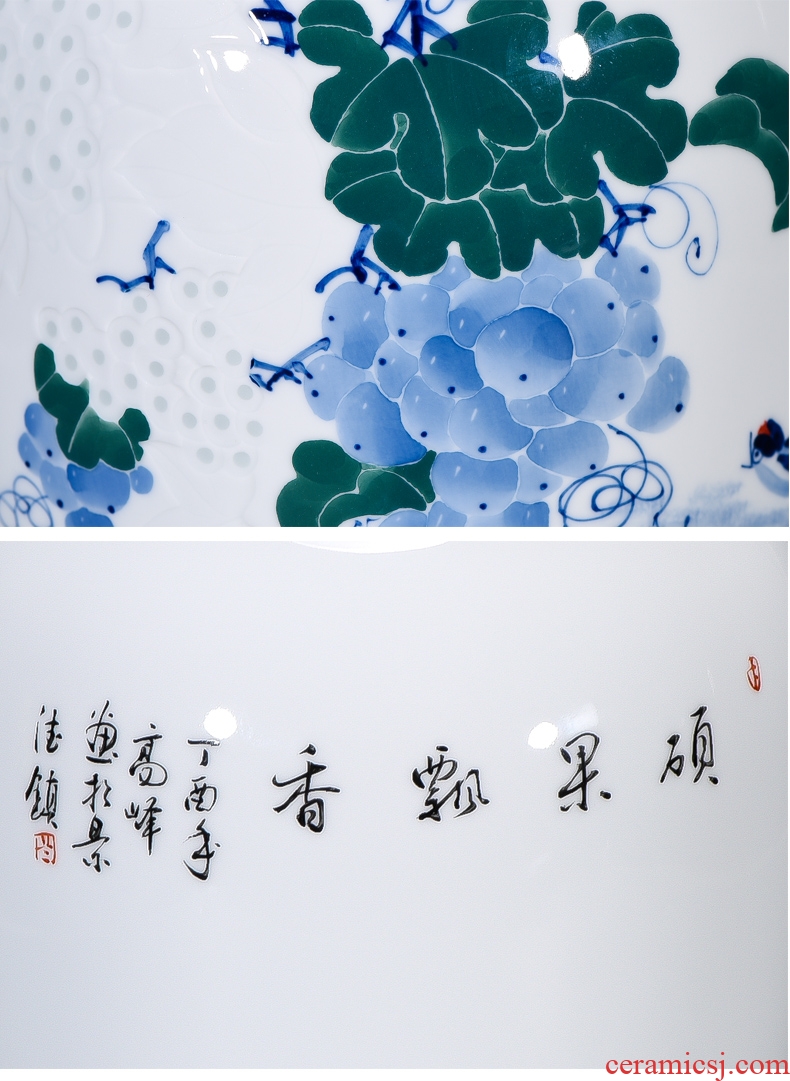 硕果飘香
丁酉年
高峰
画於景
德镇
ceramicsj.com